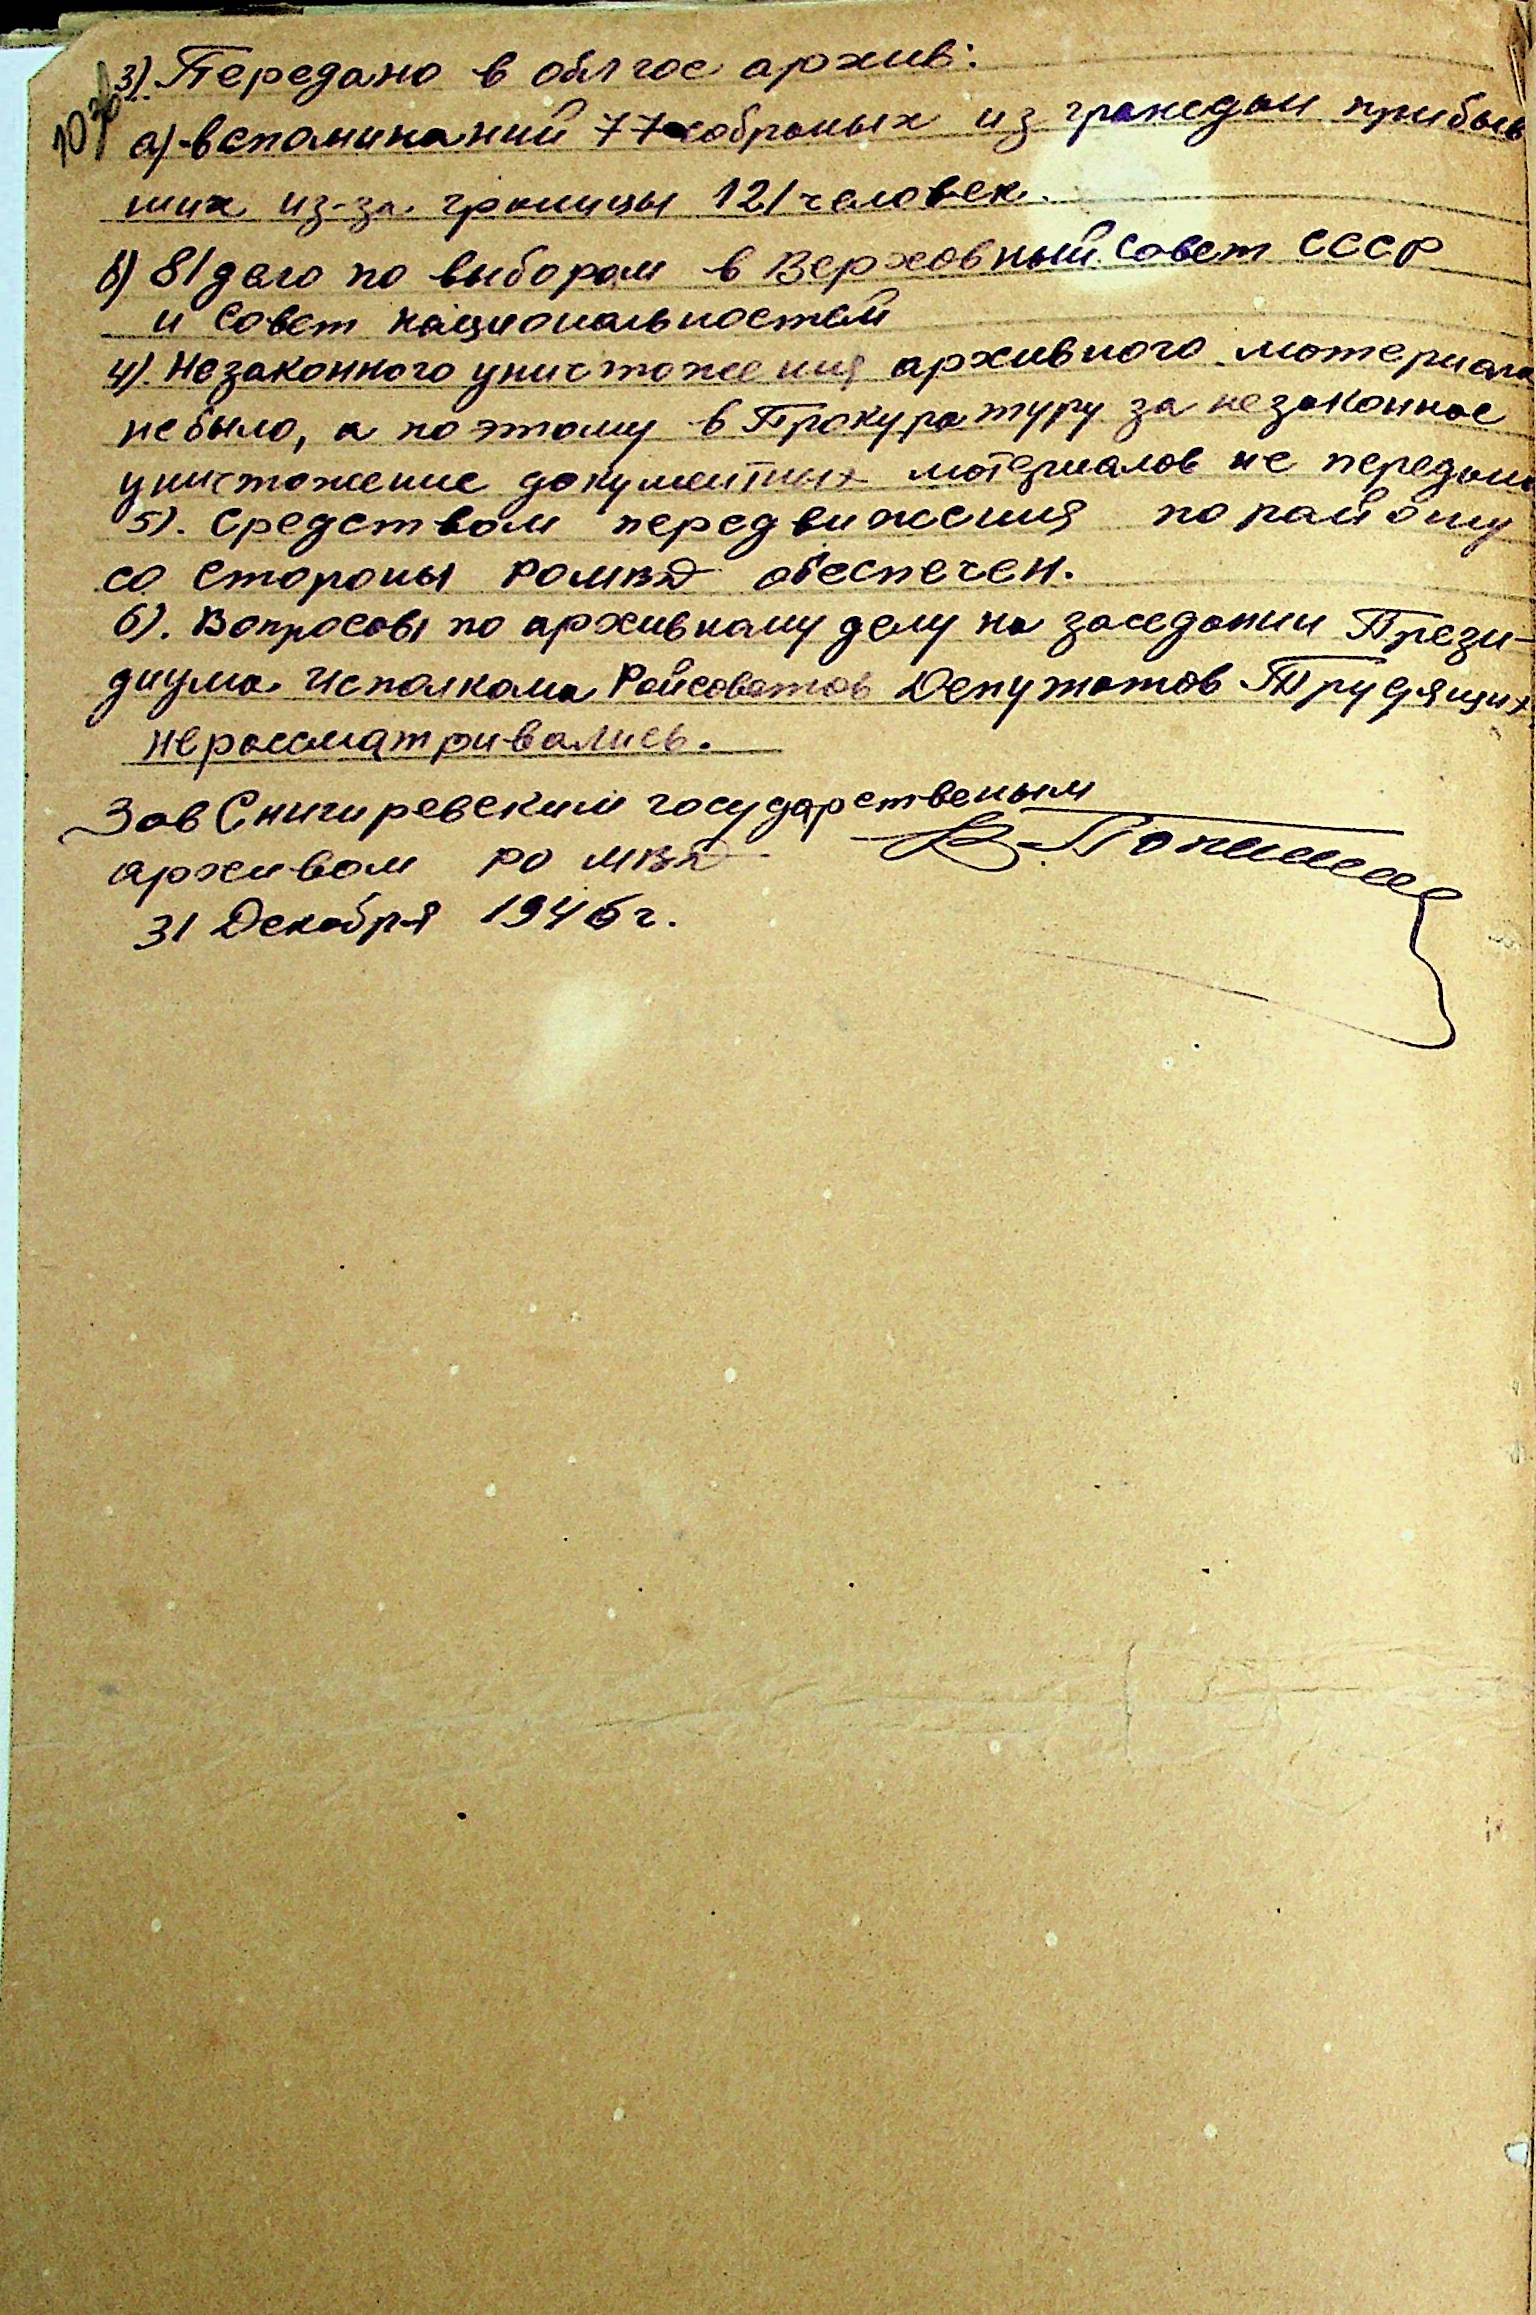 3) Передано в облгос архив:
а) вспоминаний 77 собраных из граждан прибыв
ших из-за границы 121 человек.
в) 81 дело по выборам в Верховный Совет СССР
и Совет национальностей
4). Незаконного уничтожения архивного материала
небыло, а поэтому в Прокуратуру за незаконное
уничтожение документных материалов не передано
5). Средством передвижения по району
со стороны РОМВД обеспечен.
6). Вопросовы по архивному делу на заседании Прези-
диума Исполкома Райсоветов Депутатов Трудящих
нерассматривались.
Зав Снигиревским государственым
архивом РО МВД
31 Декабря 1946 г.